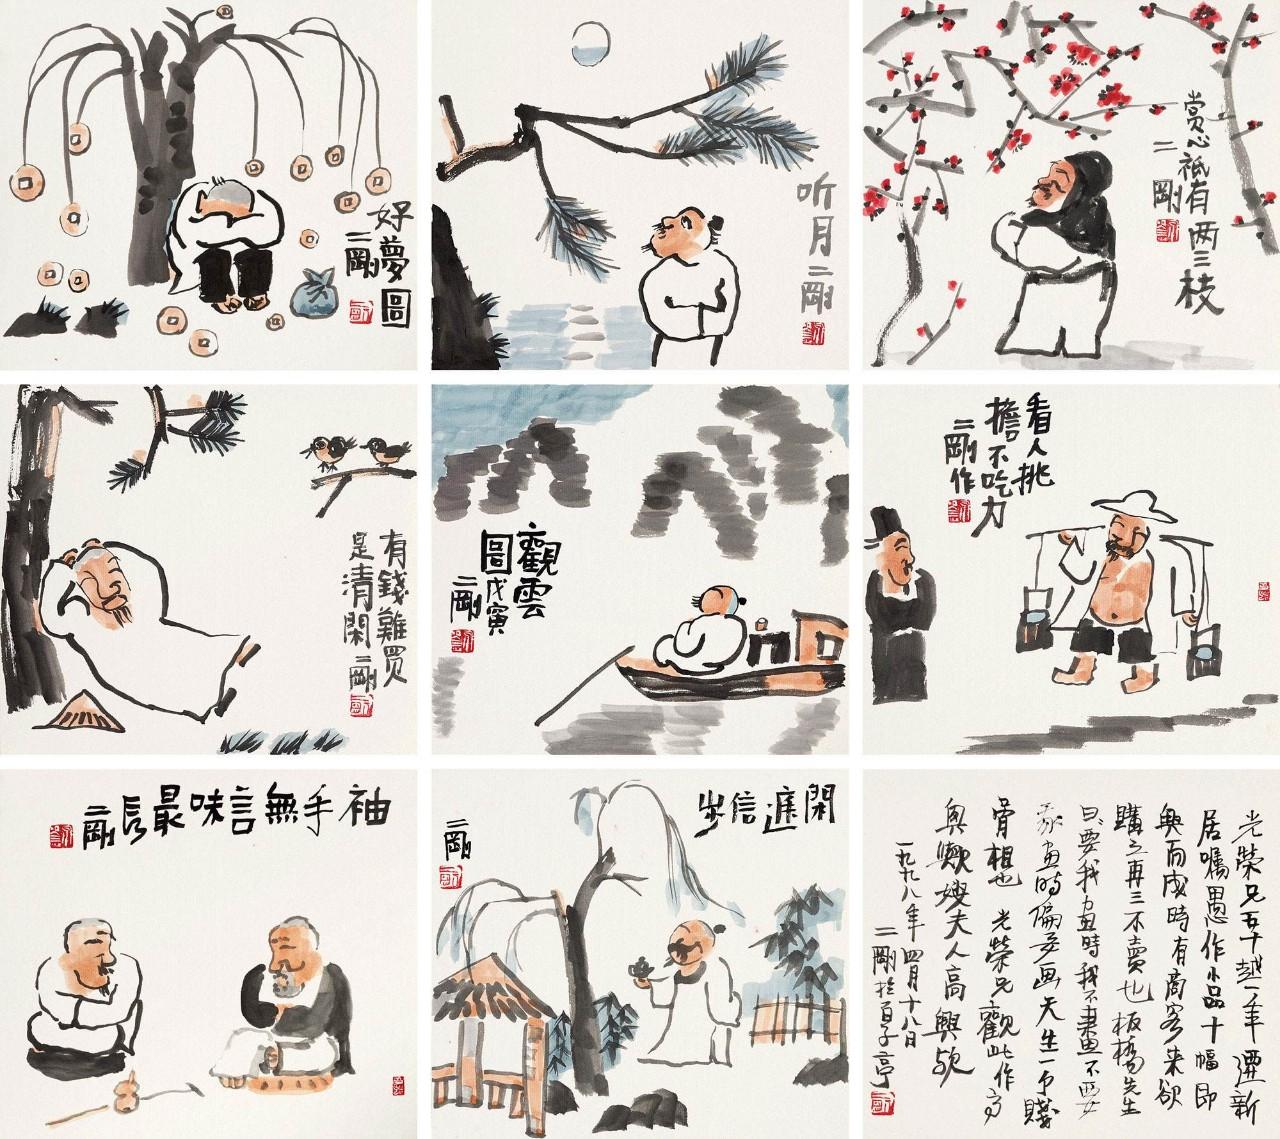 好夢圖
二剛
听月二剛
赏心祗有两三枝
二剛
有錢難買
是清閑二剛
觀雲
圖戊寅
二剛
看人挑
擔不吃力
二剛作
袖手無言味最長
二剛
閑遊信步
二剛
光榮兄五十越一年遷新
居嘱愚作小品十幅即
興而成時有商客来欲
購之再三不賣也板橋先生
曰要我画時我不畫不要
我画時偏要画天生一个賤
骨相也光榮兄觀此作可
與嫂夫人高興歟
一九九八年四月十八日
二剛於百子亭